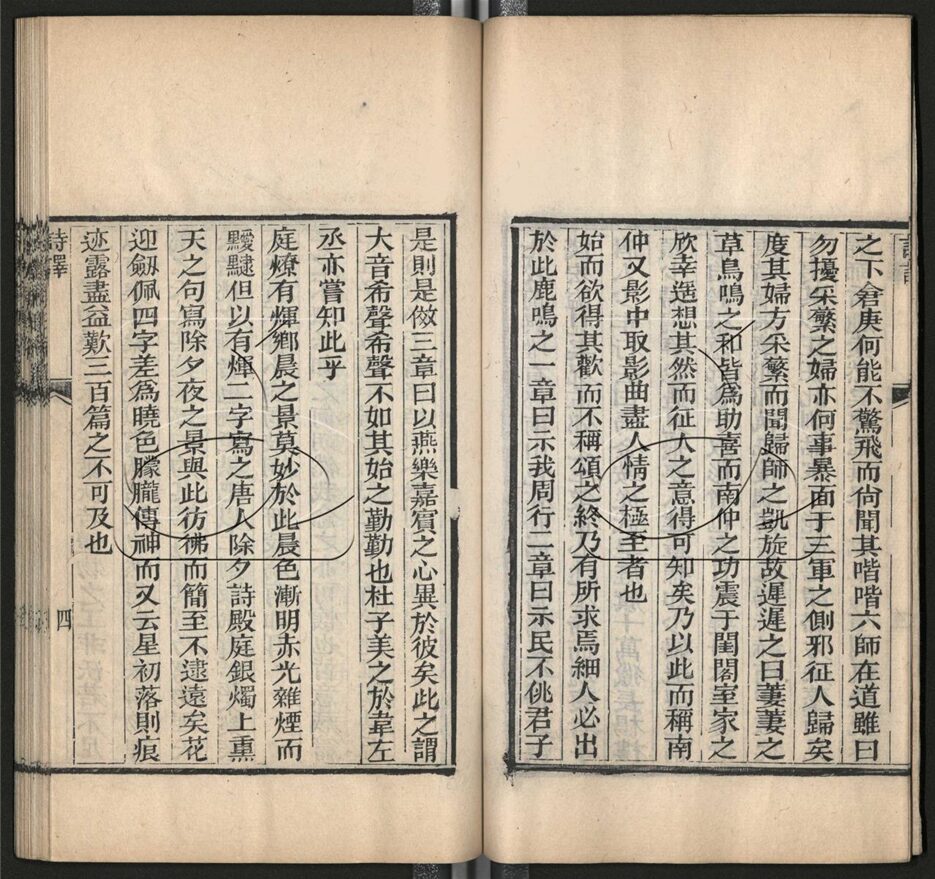 之下倉庚何能不驚飛而尙聞其喈喈六師在道雖曰
勿擾采蘩之婦亦何事暴面于三軍之側邪征人歸矣
度其婦方采蘩而聞歸師之凱旋故遲遲之日萋萋之
草鳥鳴之和皆爲助喜而南仲之功震于閨閣室家之
欣幸遥想其然而征人之意得可知矣乃以此而稱南
仲又影中取影曲盡人情之極至者也
始而欲得其歡而不稱頌之終乃有所求焉細人必出
於此鹿鳴之一章曰示我周行二章曰示民不佻君子
是則是傚三章曰以燕樂嘉賓之心異於彼矣此之謂
大音希聲希聲不如其始之勤勤也杜子美之於韋左
丞亦嘗知此乎
庭燎有煇鄉晨之景莫妙於此晨色漸明赤光雜煙而
靉靆但以有煇二字寫之唐人除夕詩殿庭銀燭上熏
天之句寫除夕夜之景與此彷彿而簡至不逮遠矣花
迎劔佩四字差爲曉色朦朧傳神而又云星初落則痕
迹露盡益歎三百篇之不可及也
詩譯
四